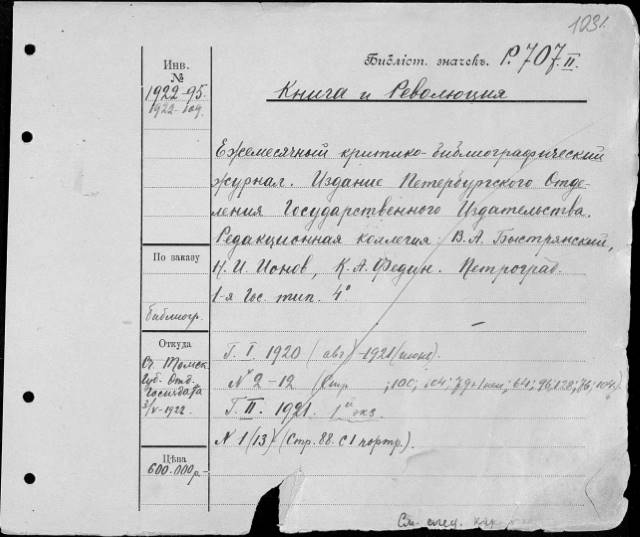 1231.
Инв.
№
1922-95.
1922-год.
Библіот. значекъ. Р. 707. II.
Книга и Революция
Ежемесячный критико-библиографический
журнал. Издание Петербургского Отде-
ления Государственного Издательства.
Редакционная коллегия: В. А. Быстрянский,
И. И. Ионов, К. А. Федин. Петроград.
1-я Гос. тип. 4°
По заказу
библиогр.
Откуда
Сч. Томск.
Губ. Отд.
Госиздата
3/V-1922.
Цѣна
600.000 р.
Г. I. 1920 (авг)-1921 (июнь).
№ 2-12 (Стр ; 100; 104; 79+1 ; 64; 96, 128; 76, 104).
Г. II. 1921. 1й экз.
№ 1 (13) (Стр. 88. С 1 портр.).
См. след.